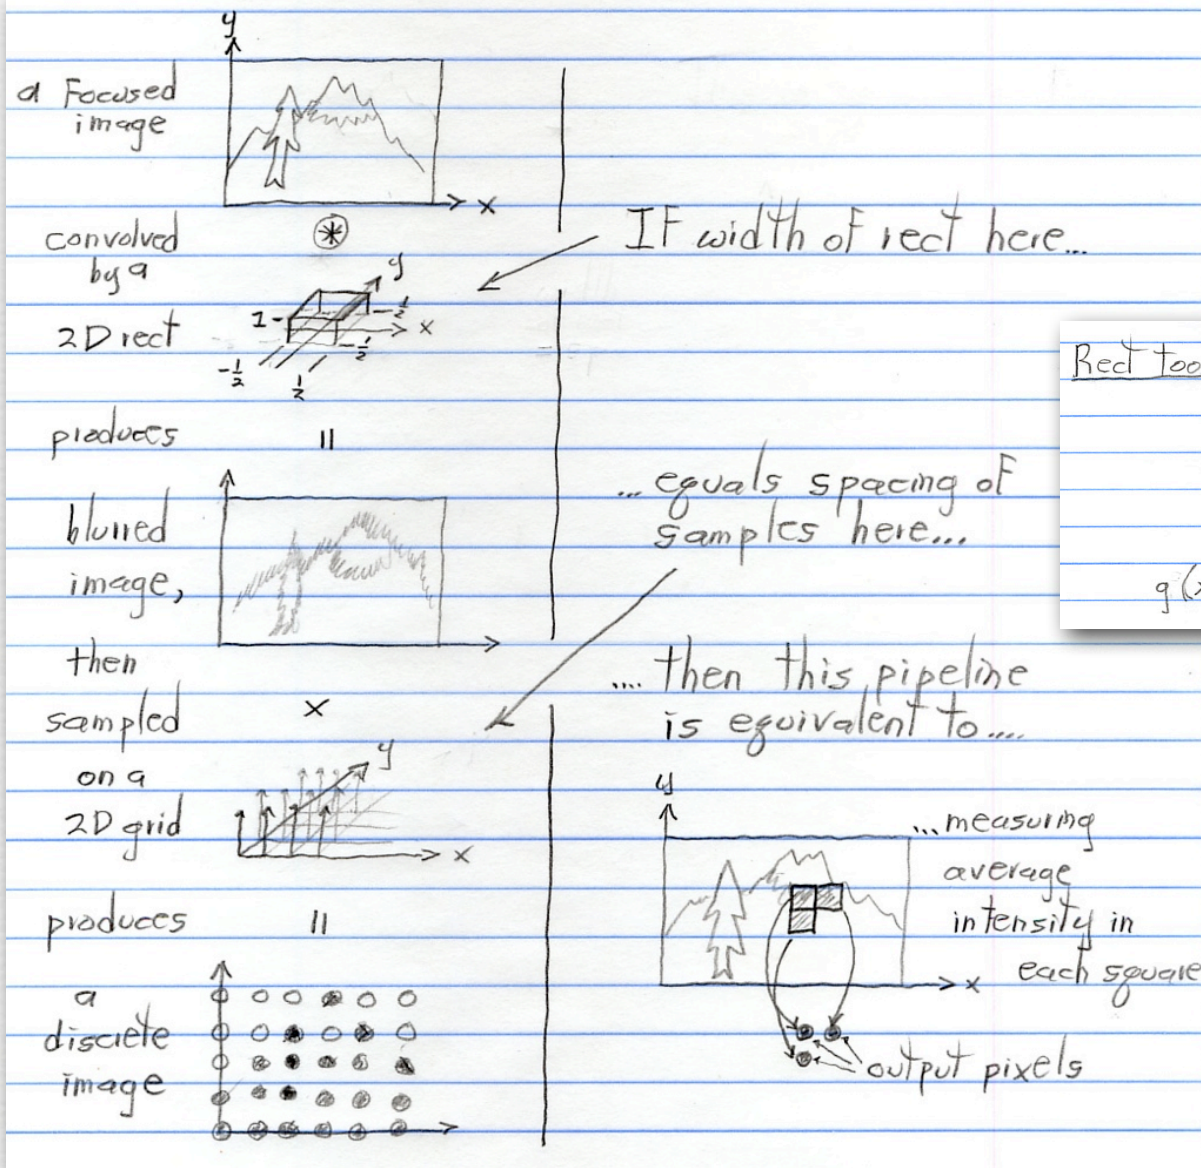 y
a Focused
image
x
convolved
by a
⊛
2D rect
1
y
x
-1/2
1/2
-1/2
-1/2
produces
=
blurred
image,
then
sampled
×
on a
2D grid
y
x
produces
=
a
discrete
image
If width of rect here...
...equals spacing of
samples here...
....then this pipeline
is equivalent to....
y
x
...measuring
average
intensity in
each square
output pixels
Rect too
g(x